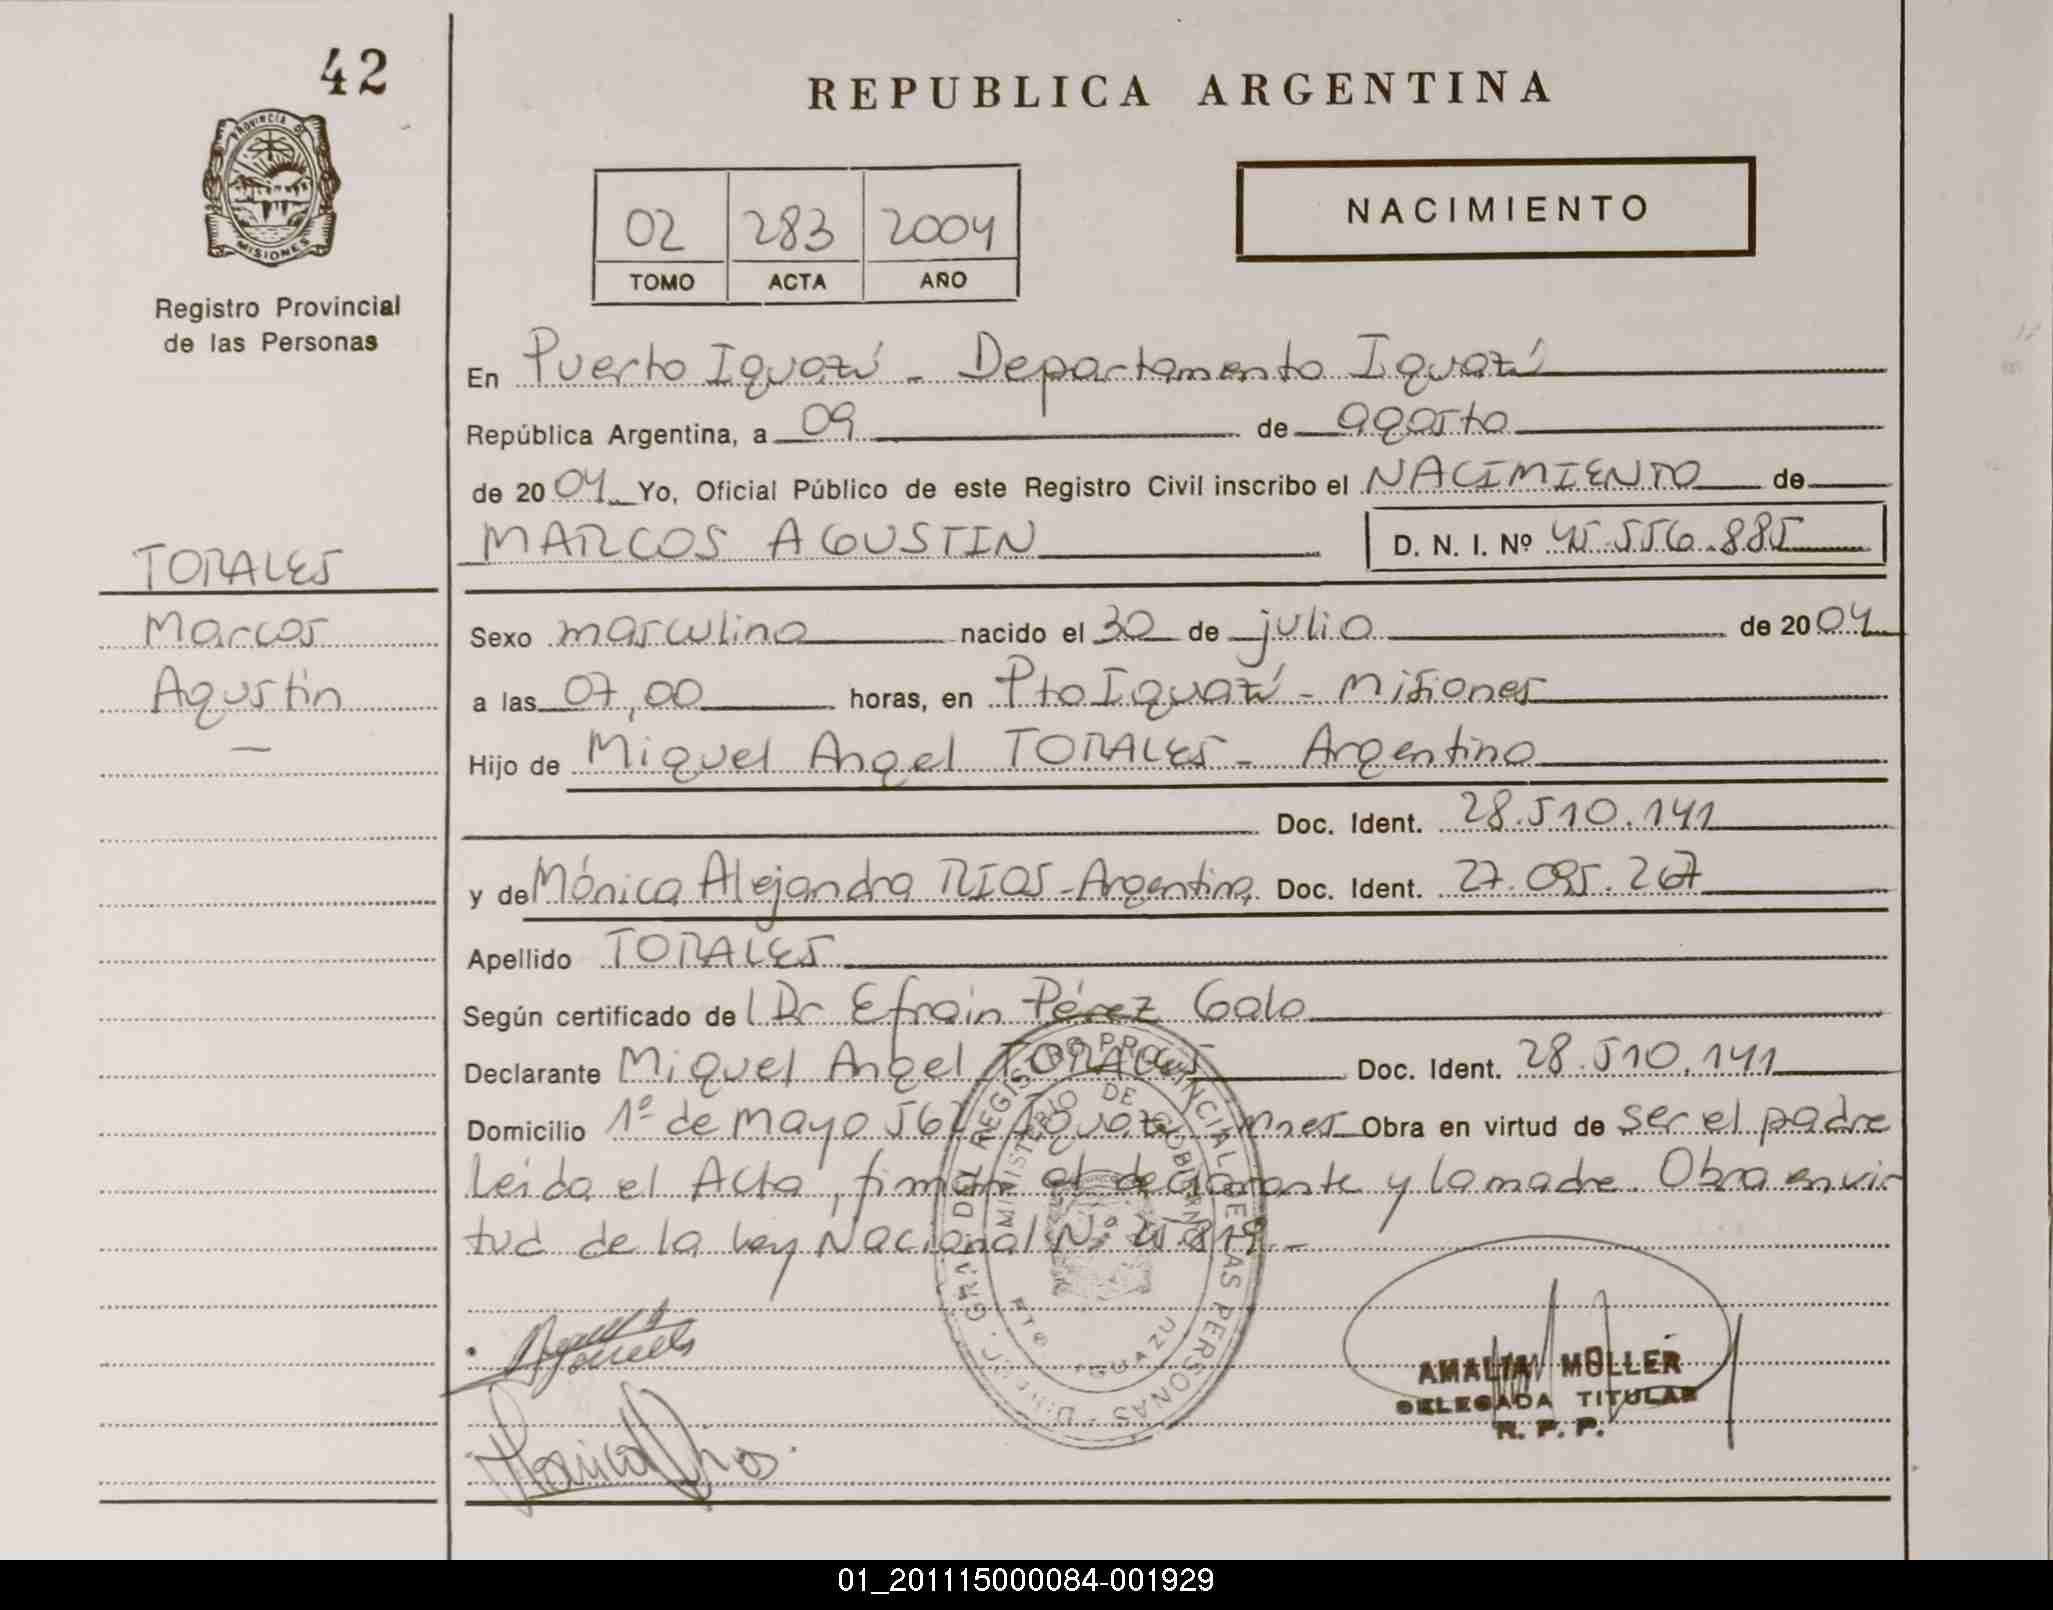 42
REPUBLICA ARGENTINA
PROVINCIA DE
MISIONES
Registro Provincial
de las Personas
02 283 2004
TOMO ACTA AÑO
NACIMIENTO
En Puerto Iguazú - Departamento Iguazú
República Argentina, a 09 de agosto
de 2004 Yo, Oficial Público de este Registro Civil inscribo el NACIMIENTO de
MARCOS AGUSTIN D. N. I. Nº 45.556.885
TORALES
Marcos
Agustin
Sexo masculino nacido el 30 de julio de 2004
a las 07,00 horas, en Pto Iguazú - Misiones
Hijo de Miguel Angel TORALES - Argentino
Doc. Ident. 28.510.141
y de Mónica Alejandra RIOS - Argentina Doc. Ident. 27.095.267
Apellido TORALES
Según certificado del Dr Efrain Pérez Galo
Declarante Miguel Angel TORALES Doc. Ident. 28.510.141
Domicilio 1º de mayo Iguazú Mnes Obra en virtud de ser el padre
Leida el Acta, firman el declarante y la madre. Obra en vir
tud de la Ley Nacional Nº
REGISTRO PROVINCIAL DE LAS PERSONAS
MINISTERIO DE GOBIERNO
PTO IGUAZU
AMALIA MÖLLER
DELEGADA TITULAR
R. P. P.
01_201115000084-001929